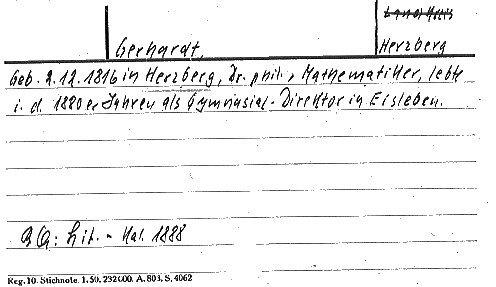 Landkreis
Gerhardt,
Herzberg
Geb. 2.12.1816 in Herzberg, Dr. phil., Mathematiker, lebte
i. d. 1880er Jahren als Gymnasial-Direktor in Eisleben.
BQ: Lit. - Kal. 1888
Reg. 10. Stichnote. 1. 50. 232000. A. 803. S. 4062